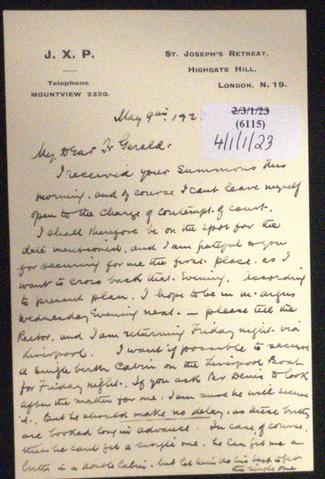 J. X. P.
ST. JOSEPH'S RETREAT,
HIGHGATE HILL,
LONDON, N. 19.
Telephone
MOUNTVIEW 2320.
2/3/1/23
(6115)
4/1/1/23
May 9th, 192
My Dear Fr Gerald:
I received your Summons this
morning. and of course I cant leave myself
open to the Charge of Contempt of court.
I shall therefore be on the spot for the
date mentioned, and I am grateful to you
for securing for me the first place. as I
want to cross back that Evening. According
to present plan. I hope to be in Mt. Argus
Wednesday Evening next. — please tell the
Rector. and I am returning Friday night via
Liverpool. I want if possible to secure
a Single berth Cabin on the Liverpool Boat
for Friday night. If you ask Bro Denis to look
after the matter for me. I am sure he will secure
it. But he should make no delay, as these berths
are booked long in advance. In case of course,
that he cant get a single one. he can get me a
berth in a double Cabin. but let him do his best to get
the single one